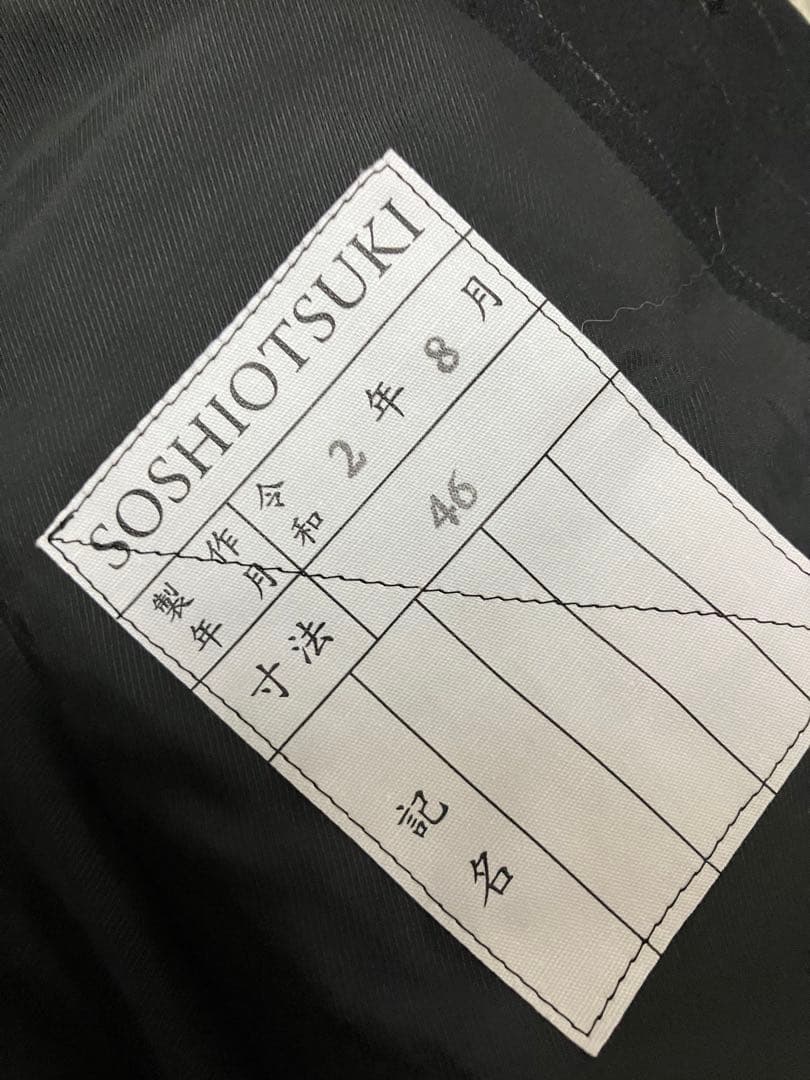 SOSHIOTSUKI
製作年月 令和2年8月
寸法 46
記名